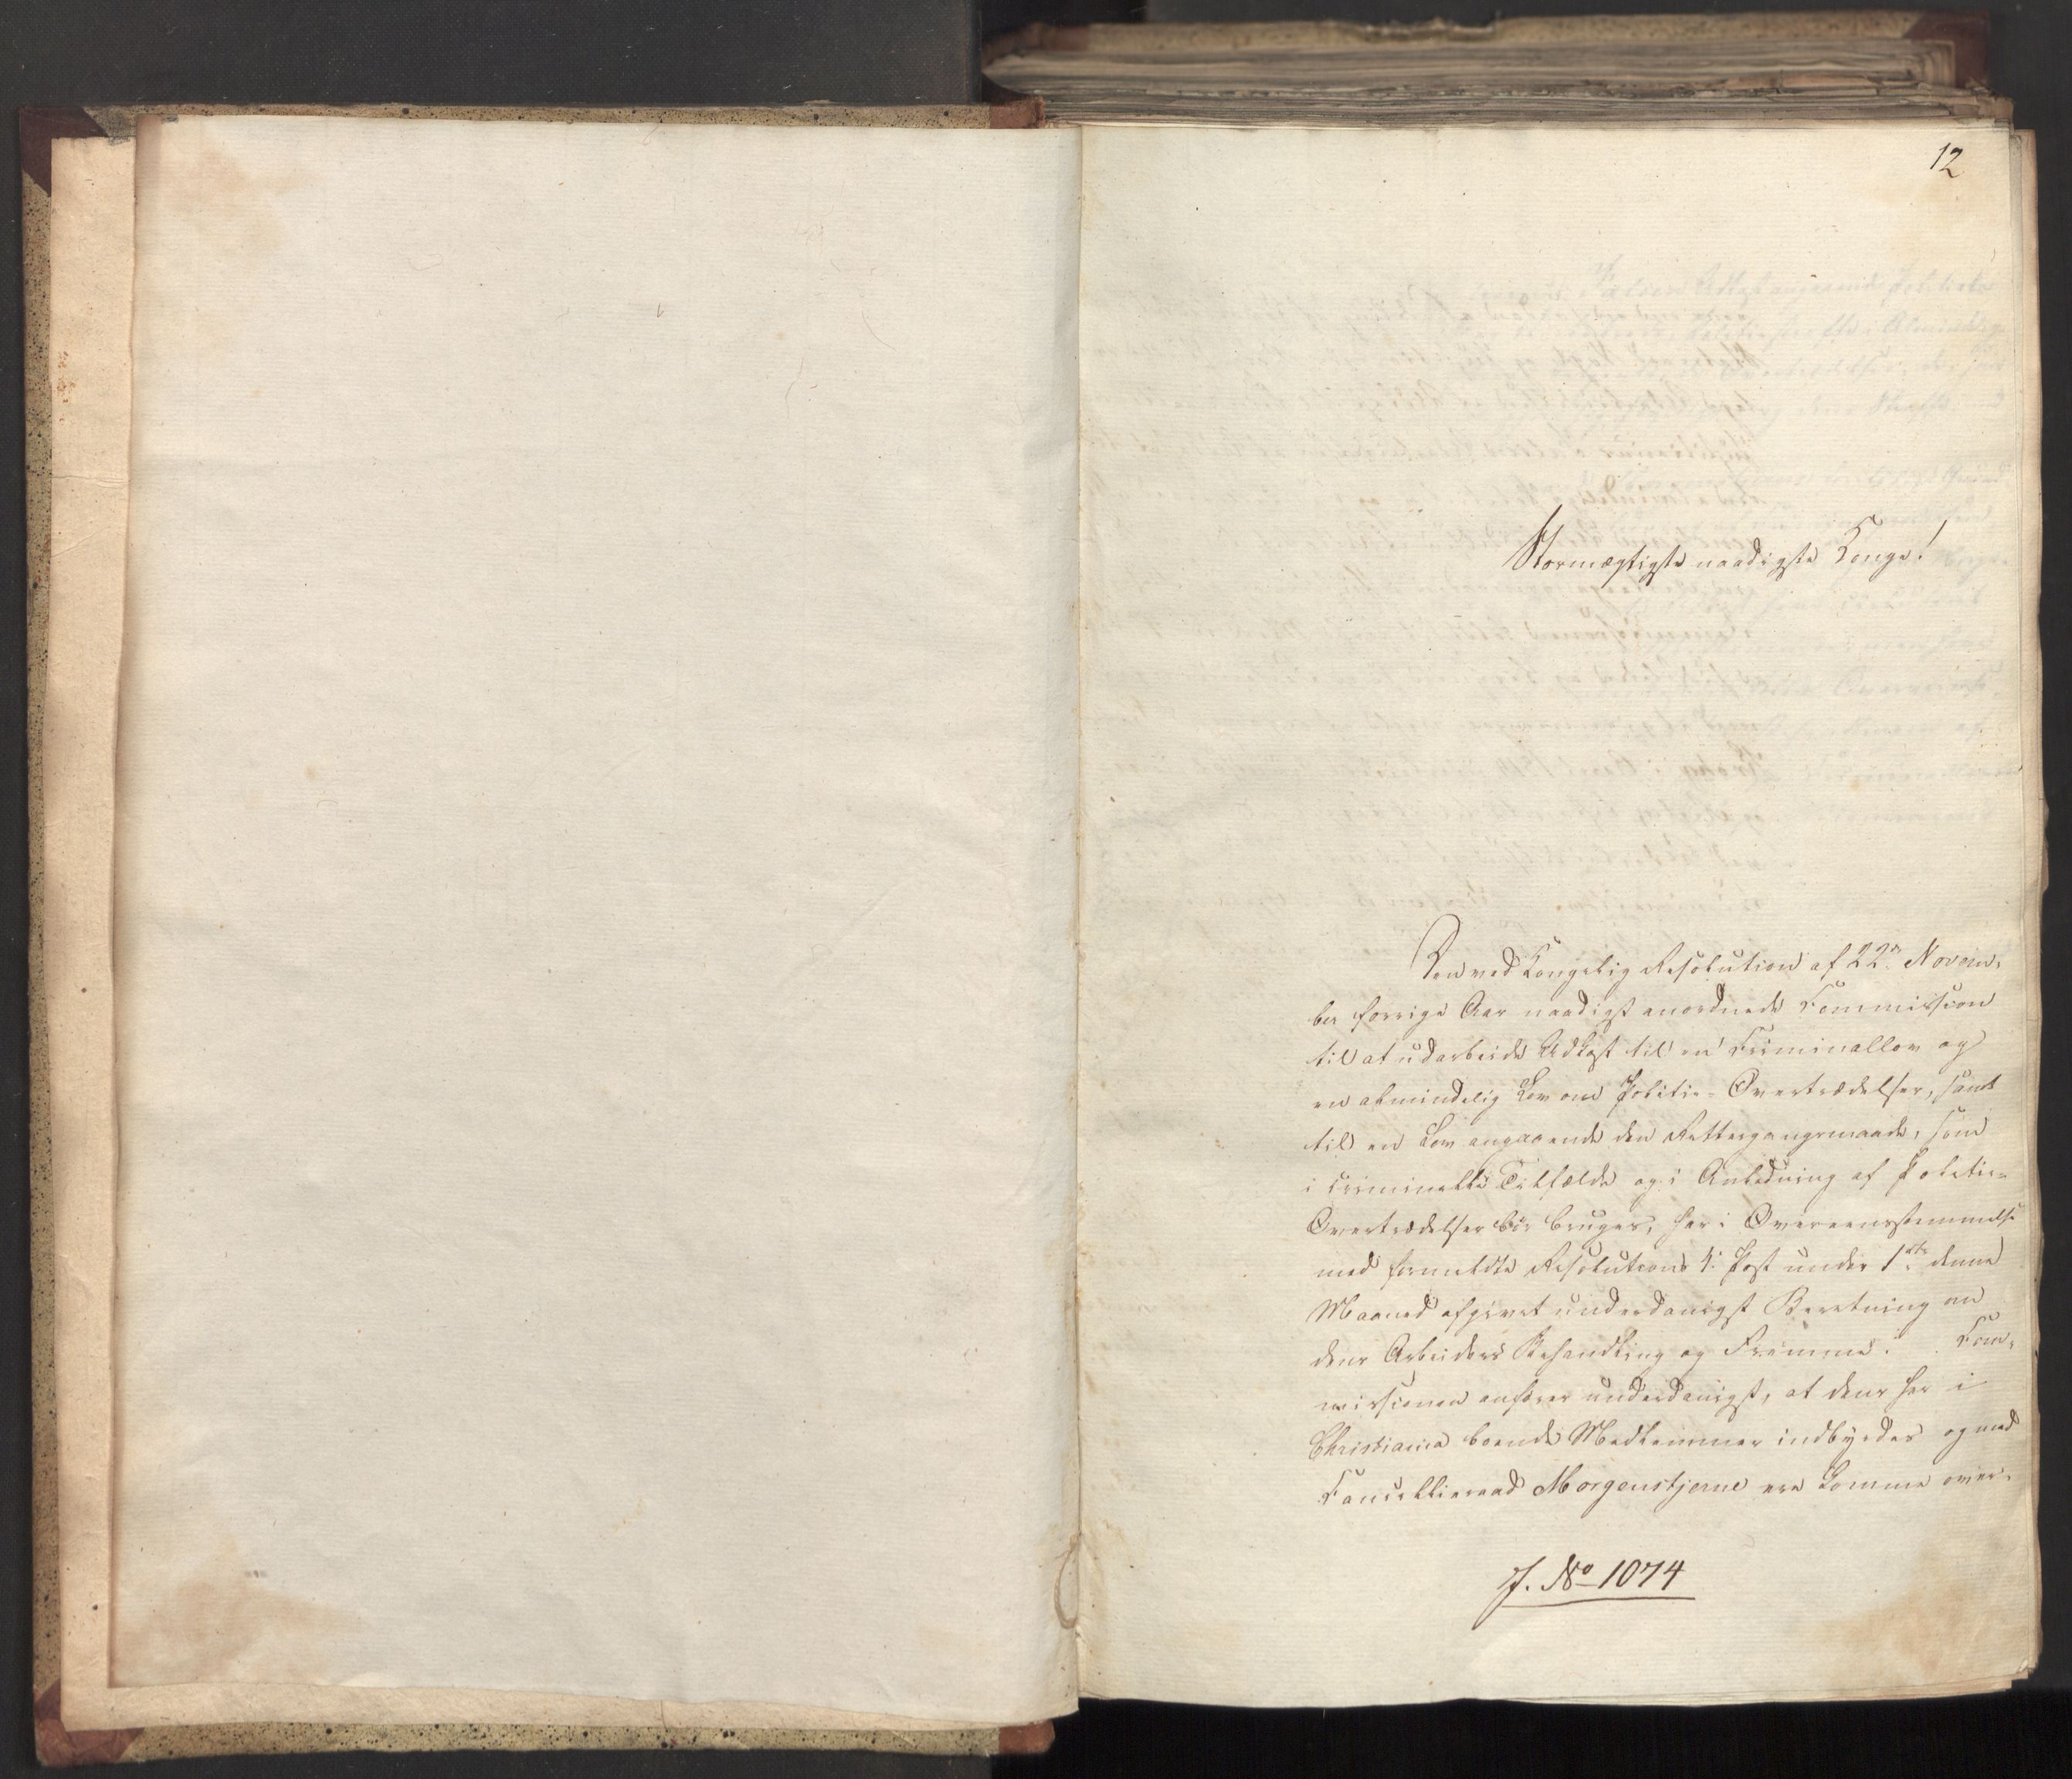 12
Stormægtigste naadigste Konge!
Den ved Kongelig Resolution af 22de Novem-
ber forrige Aar naadigst anordnede Commission
til at udarbeide Udkast til en Criminallov og
en almindelig Lov om Politie-Overtrædelser, samt
til en Lov angaaende den Rettergangsmaade, som
i criminelle Tilfælde og i Anledning af Politie-
Overtrædelser bør bruges, har i Overeensstemmelse
med formeldte Resolutions 4. Post under 1ste denne
Maaned afgivet underdanigst Beretning om
dens Arbeiders Behandling og Fremme. Com-
missionen anfører underdanigst, at dens her i
Christiania boende Medlemmer indbyrdes og med
Cancellieraad Morgenstjerne ere komme over-
J. No 1074